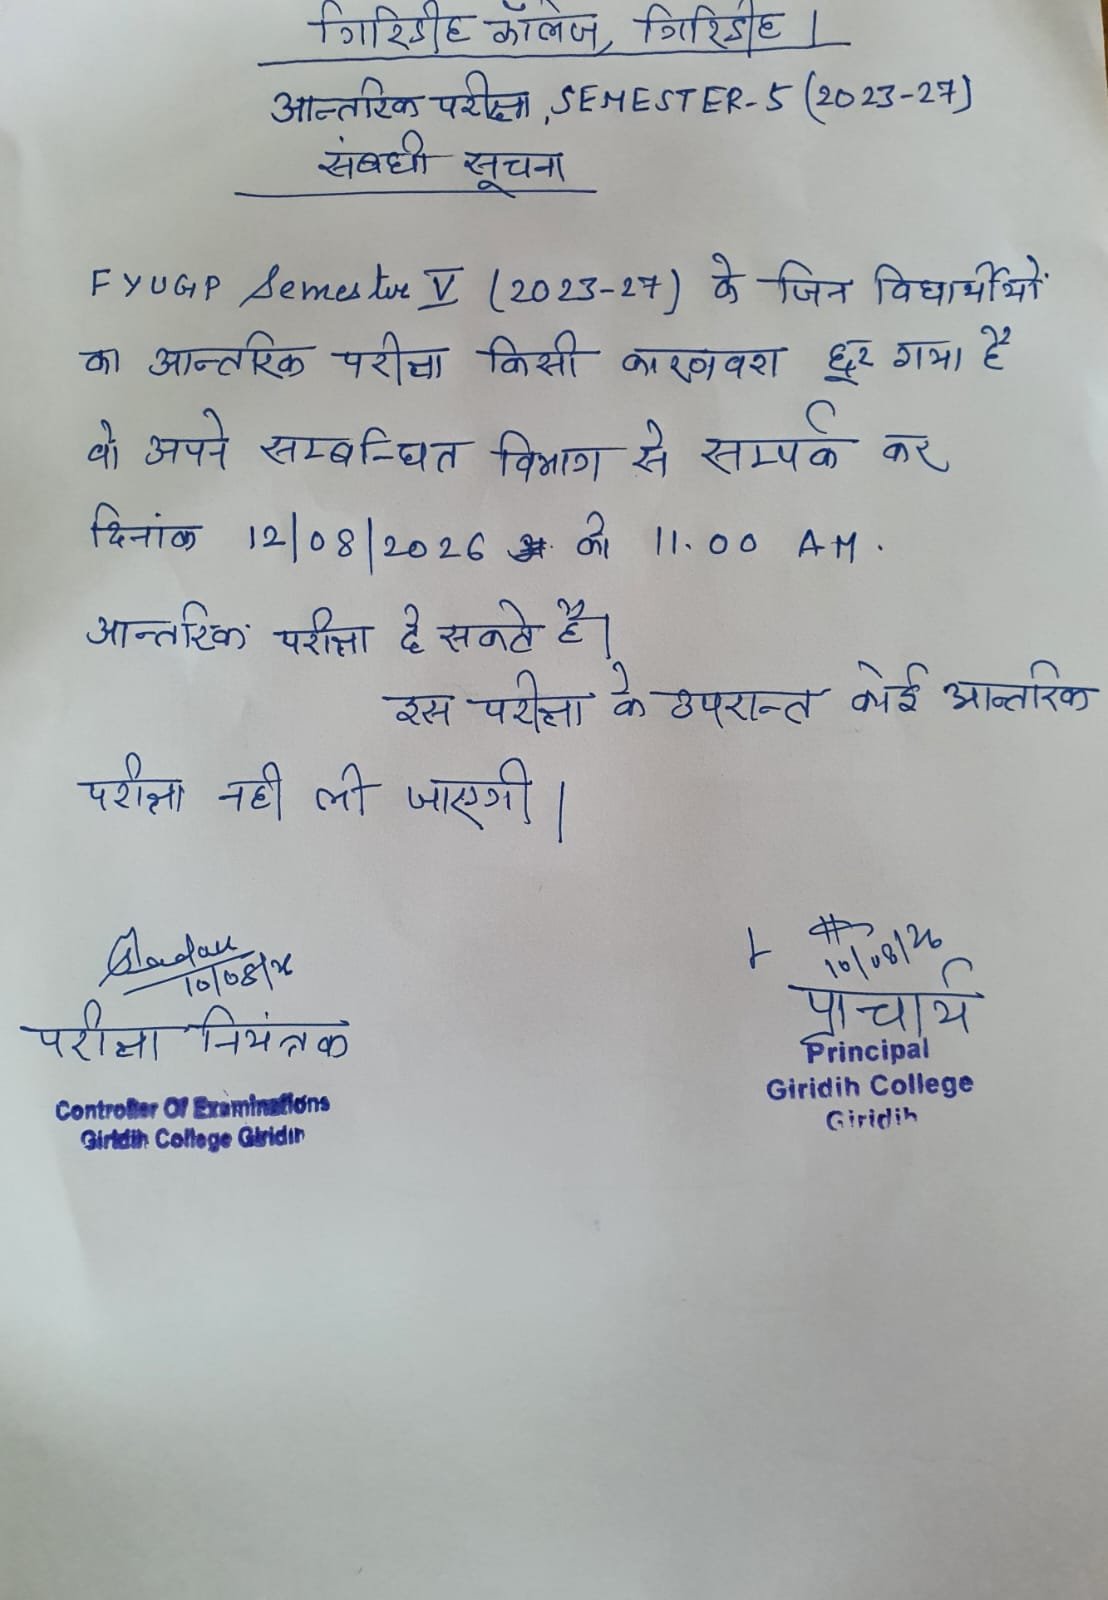 गिरिडीह कॉलेज, गिरिडीह।
आन्तरिक परीक्षा, SEMESTER-5 (2023-27)
संबधी सूचना
FYUGP Semester V (2023-27) के जिन विद्यार्थीयों
का आन्तरिक परीक्षा किसी कारणवश छूट गया है
वो अपने सम्बन्धित विभाग से सम्पर्क कर
दिनांक 12/08/2026 को 11.00 AM.
आन्तरिक परीक्षा दे सकते है।
इस परीक्षा के उपरान्त कोई आन्तरिक
परीक्षा नही ली जाएगी।
10/08/26
10/08/26
परीक्षा नियंत्रक
प्राचार्य
Controller Of Examinations
Giridih College Giridih
Principal
Giridih College
Giridih